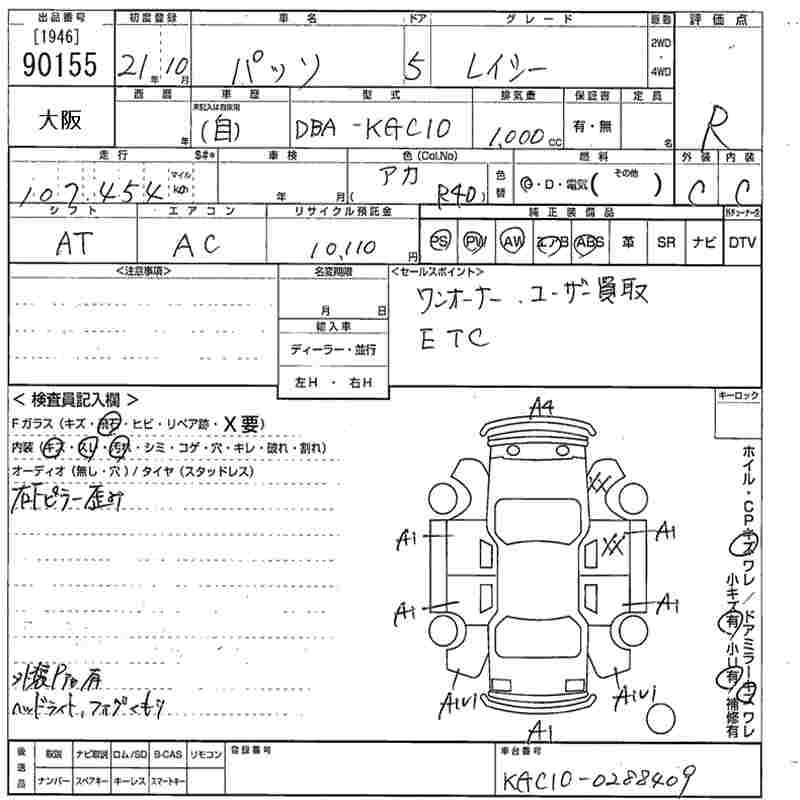 出品番号 初度登録 車名 ドア グレード 駆動 評価点
[1946]
90155 21年 10月 パッソ 5 レイシー 2WD・4WD R
大阪 西暦 年 車歴 未記入は自家用 (自) 型式 DBA-KGC10 排気量 1,000cc 保証書 有・無 定員 名
走行 $#* 車検 色(Col.No) 燃料 外装 内装
107,454 マイル km 年 月 アカ (R40) 色替 G・D・電気( その他 ) C C
シフト エアコン リサイクル預託金 純正装備品
AT AC 10,110円 PS PW AW エアB ABS 革 SR ナビ DTV
<注意事項> 名変期限 <セールスポイント>
月 日 ワンオーナー、ユーザー買取
輸入車 ETC
ディーラー・並行
左H・右H
<検査員記入欄> キーロック
Fガラス(キズ・飛石・ヒビ・リペア跡・X要)
内装(キズ・スレ・汚れ・シミ・コゲ・穴・キレ・破れ・割れ)
オーディオ(無し・穴)/タイヤ(スタッドレス)
右Fピラー歪み
外装 有
ヘッドライト、フォグくもり
A4
XX
A1 XX A1
A1 A1
A1U1 A1U1
A1
ホイル・CPキズワレ/ドアミラーキズワレ
小キズ有/小U有/補修有
後送品 取説 ナビ取説 ロム/SD B-CAS リモコン 登録番号 車台番号
ナンバー スペアキー キーレス スマートキー KGC10-0288409